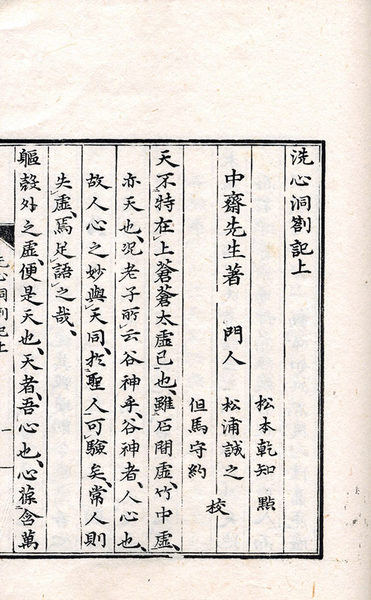 洗心洞劄記上
中齋先生著
門人
松本乾知 點
松浦誠之
但馬守約 校
天不特在上蒼蒼太虛已也、雖石間虛、竹中虛、
亦天也、況老子所云谷神乎、谷神者、人心也、
故人心之妙與天同、於聖人可驗矣、常人則
失虛、焉足語之哉、
軀殼外之虛便是天也、天者、吾心也、心葆含萬
洗心洞劄記上
一